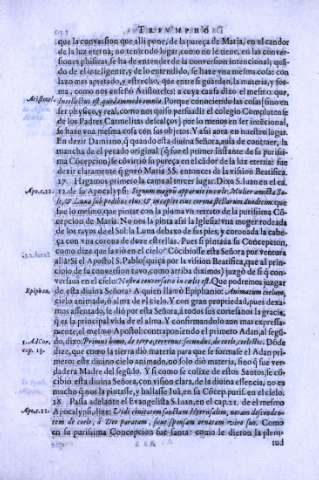 TRIVMPHO
que la conuersion que alli pone, de la pureza de Maria, en el candor
de la luz eterna; no teniendo lugar, como no le tiene, en las conuer-
siones phisicas, se ha de entender de la conuersion intencional; quã-
do de el inteligente, y de lo entendido, se haze vna mesma cosa: con
lazo mas apretado, y estrecho, que entre si guardan, la materia, y for-
Aristotel. ma, como nos enseñò Aristoteles: a cuya causa dixo el mesmo: que,
Intellectus est quodammodo omnia. Porque conociendo las cosas (sino en
ser physico, y real, como nos quiso persuadir el colegio Complutense
de los Padres Carmelitas descalços) por lo menos en ser intencional,
se haze vna mesma cosa con sus objetos. Y assi aora en nuestro lugar.
En dezir Damiano, q̃ quando esta diuina Señora, auia de contraer, la
mancha de el pecado original (q̃ fue el primer instante de su purissi-
ma Cõcepcion) se cõuirtiò su pureza en el cãdor de la luz eterna: fue
dezir claramente q̃ gozò Maria SS. entonces de la vision Beatifica.
17. Hagamos primero la cama al tercer lugar. Dixo S. Iuan en el ca.
Apo.c.12. 12. de su Apocalypsi: Signum magnũ apparuit in cœlo, Mulier amicta So-
le, & Luna sub pedibus eius, & in capite eius corona stellarum duodecim: que
fue lo mesmo, que pintar con la pluma vn retrato de la purissima Cõ-
cepcion de Maria. Nos la pinta assi la Iglesia: vna muger rodeada
de los rayos de el Sol: la Luna debaxo de sus pies; y coronada la cabe-
ça con vna corona de doze estrellas. Pues si pintada su Concepcion,
como dize que la viò en el cielo?
allà? Si el Apostol (S. Pablo) quiçà por la vision Beatifica, que al prin-
cipio de su conuersion tuuo, como arriba diximos) juzgò de si q̃ con-
uersaua en el cielo: Nostra conuersatio in cœlis est. Que podremos juzgar
Epiphan. de esta diuina Señora? A quien llamò Epiphanio: Animatum cœlum,
cielo animado, ò alma de el cielo. Y con gran propriedad, pues dexa-
mos assentado, se diò por esta Señora, à todos sus cortesanos la gracia,
q̃ es la principal vida de el alma. Y confirmandolo aun mas expressa-
mente, el mesmo Apostol: contraponiendo el primero Adan, al segũ-
1. ad Cor. do, dixo: Primus homo, de terra, terrenus: secundus, de cœlo, cœlestis. Dõde
cap. 15. dize, que como la tierra diò materia para que se formasse el Adan pri-
mero: este diuino cielo animado, no solo diò materia, sino q̃ fue ver-
dadera Madre del segũdo. Y si como se colige de estos Santos, se cõ-
cibiò esta diuina Señora, con vision clara, de la diuina essencia, no es
mucho q̃ nos la pintasse, y hallasse Iuã, en su Cõcep. puris. en el cielo.
18. Passa adelante el Evangelista S. Iuan, en el cap. 21. de el mesmo
Apo.c.21. Apocalypsi, dize: Vidi ciuitatem sanctam Hyerusalem, nouam descenden-
tem de cœlo, à Deo paratam, sicut sponsam ornatam viro suo. Como
en su purissima Concepcion fue santa: como le dieron la pleni-
tud